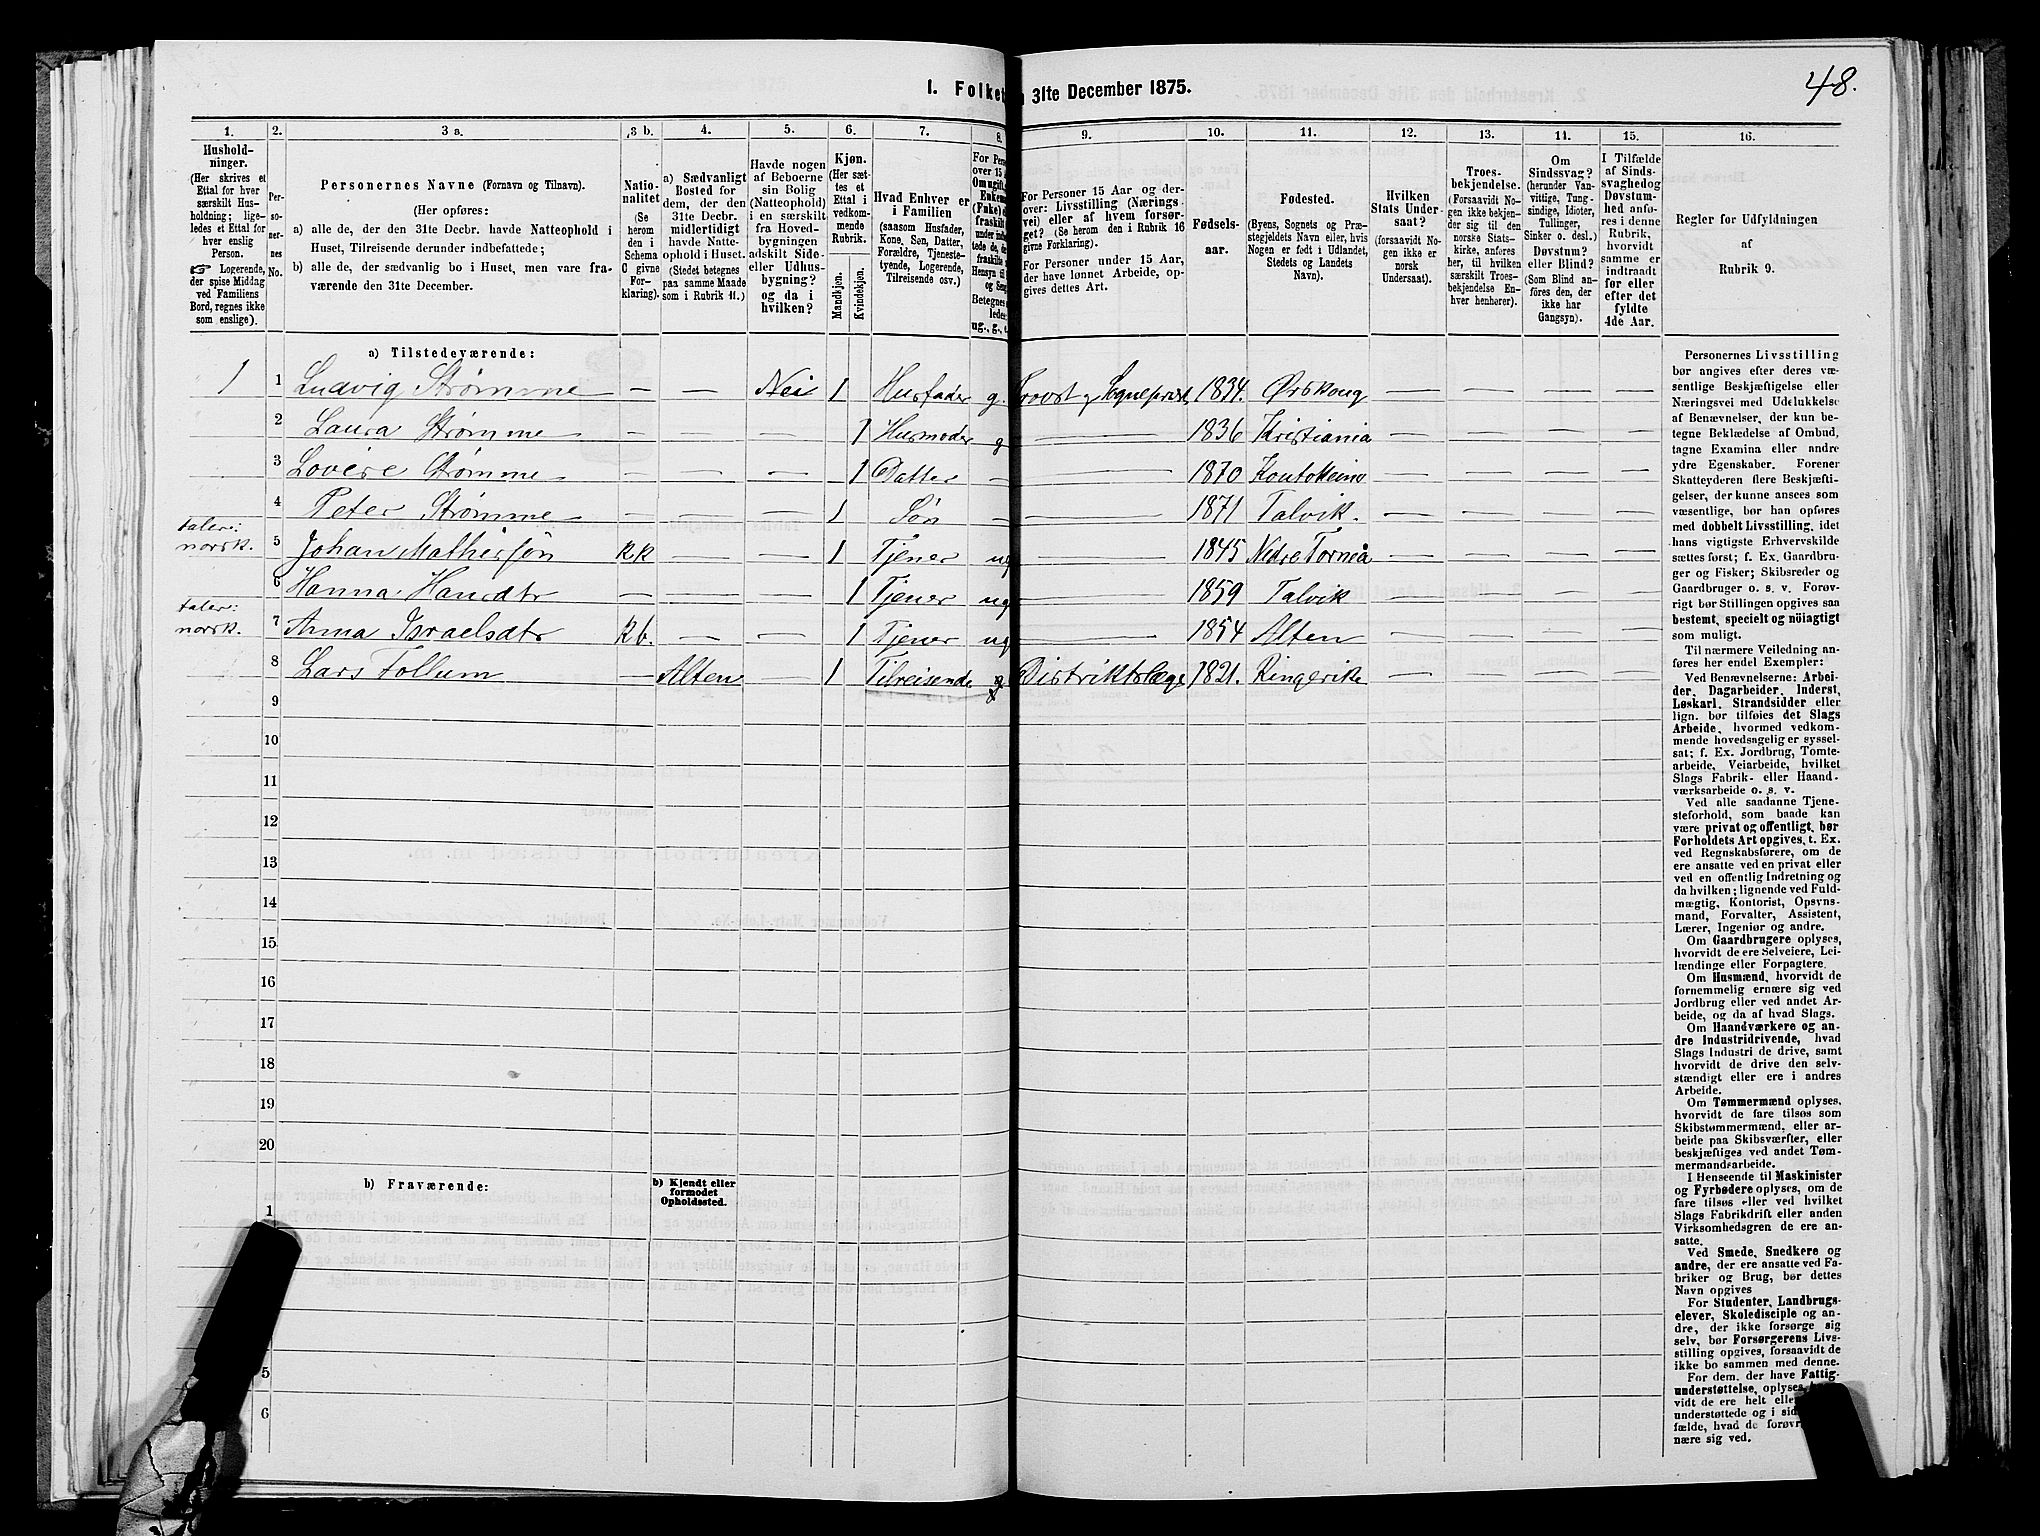 48.
I. Folket
31te December 1875.
1. 2. 3 a. 3 b. 4. 5. 6. 7. 8. 9. 10. 11. 12. 13. 14. 15. 16.
Hushold-
ninger.
(Her skrives et
Ettal for hver
særskilt Hus-
holdning; lige-
ledes et Ettal for
hver enslig
Person.
☞ Logerende,
der spise Middag
ved Familiens
Bord, regnes ikke
som enslige).
Per-
so-
ner-
nes
No.
Personernes Navne (Fornavn og Tilnavn).
(Her opføres:
a) alle de, der den 31te Decbr. havde Natteophold i
Huset, Tilreisende derunder indbefattede;
b) alle de, der sædvanlig bo i Huset, men vare fra-
værende den 31te December.
Natio-
nalitet
(Se
herom
den i
Schema
O givne
For-
klaring).
a) Sædvanligt
Bosted for
dem, der den
31te Decbr.
midlertidigt
havde Natte-
ophold i Huset.
(Stedet betegnes
paa samme Maade
som i Rubrik 11.)
Havde nogen
af Beboerne
sin Bolig
(Natteophold)
i en særskilt
fra Hoved-
bygningen
adskilt Side-
eller Udhus-
bygning?
og da i
hvilken?
Kjøn.
(Her sæt-
tes et
Ettal i
vedkom-
mende
Rubrik.
Mandkjøn.
Kvindekjøn.
Hvad Enhver er
i Familien
(saasom Husfader,
Kone, Søn, Datter,
Forældre, Tjeneste-
tyende, Logerende,
Tilreisende osv.)
For Pers
over 15 a
Omugift,
Enkem
(Fnke)
fraskilt
For Personer 15 Aar og der-
over: Livsstilling (Nærings-
vei) eller af hvem forsør-
get? (Se herom den i Rubrik 16
givne Forklaring).
For Personer under 15 Aar,
der have lønnet Arbeide, op-
gives dettes Art.
Fødsels-
aar.
Fødested.
(Byens, Sognets og Præ-
stegjeldets Navn eller, hvis
Nogen er født i Udlandet,
Stedets og Landets
Navn).
Hvilken
Stats Under-
saat?
(forsaavidt No-
gen ikke er
norsk
Undersaat).
Troes-
bekjendelse.
(Forsaavidt No-
gen ikke bekjen-
der sig til den
norske Stats-
kirke, anføres
her, til hvilken
særskilt Troes-
bekjendelse En-
hver henhører).
Om
Sindssvag?
(herunder Van-
vittige, Tung-
sindige, Idioter,
Tullinger,
Sinker o. desl.)
Døvstum?
eller Blind?
(Som Blind an-
føres den, der
ikke har
Gangsyn).
I Tilfælde
af Sinds-
svaghed og
Døvstum-
hed anfø-
res i denne
Rubrik,
hvorvidt
samme er
indtraadt
før eller
efter det
fyldte
4de Aar.
Regler for Udfyldningen
af
Rubrik 9.
a) Tilstedeværende:
1 1 Ludvig Strømme — — Nei 1 Husfader g. Provst og Sognepræst 1834. Ørskoug — — — —
2 Laura Strømme — — — 1 Husmoder g — 1836 Kristiania — — — —
3 Lovise Strømme — — — 1 Datter — — 1870 Koutokeino — — — —
4 Peter Strømme — — — 1 Søn — — 1871 Talvik. — — — —
taler: norsk. 5 Johan Mathersøn kk — — 1 Tjener ug — 1845 Nedre Torneå — — — —
6 Hanna Hansdtr — — — 1 Tjener ug — 1859 Talvik — — — —
taler: norsk. 7 Anna Israelsdtr kb. — — 1 Tjener ug — 1854 Alten — — — —
8 Lars Follum — Alten — 1 Tilreisende g Distriktslæge 1821. Ringerike — — — —
9
10
11
12
13
14
15
16
17
18
19
20
b) Fraværende:
b) Kjendt eller
formodet
Opholdssted.
1
5
6
Personernes Livsstilling
bør angives efter deres væ-
sentlige Beskjæftigelse eller
Næringsvei med Udelukkelse
af Benævnelser, der kun be-
tegne Beklædelse af Ombud,
tagne Examina eller andre
ydre Egenskaber. Forener
Skatteyderen flere Beskjæfti-
gelser, der kunne ansees som
væsentlige, bør han opføres
med dobbelt Livsstilling, idet
hans vigtigste Erhvervskilde
sættes først; f. Ex. Gaardbru-
ger og Fisker; Skibsreder og
Gaardbruger o. s. v. Forøv-
rigt bør Stillingen opgives saa
bestemt, specielt og nöiagtigt
som muligt.
Til nærmere Veiledning an-
føres her endel Exempler:
Ved Benævnelserne: Arbei-
der, Dagarbeider, Inderst,
Løskarl, Strandsidder eller
lign. bør tilføies det Slags
Arbeide, hvormed vedkom-
mende hovedsagelig er syssel-
sat; f. Ex. Jordbrug, Tomte-
arbeide, Veiarbeide, hvilket
Slags Fabrik- eller Haand-
værksarbeide o. s. v.
Ved alle saadanne Tjene-
steforhold, som baade kan
være privat og offentligt, bør
Forholdets Art opgives, t. Ex.
ved Regnskabsførere, om de
ere ansatte ved en privat eller
ved en offentlig Indretning og
da hvilken; lignende ved Fuld-
mægtig, Kontorist, Opsyns-
mand, Forvalter, Assistent,
Lærer, Ingeniør og andre.
Om Gaardbrugere oplyses,
hvorvidt de ere Selveiere, Lei-
lændinge eller Forpagtere.
Om Husmænd, hvorvidt de
fornemmelig ernære sig ved
Jordbrug eller ved andet Ar-
beide, og da af hvad Slags.
Om Haandværkere og an-
dre Industridrivende, hvad
Slags Industri de drive, samt
hvorvidt de drive den selv-
stændigt eller ere i andres
Arbeide.
Om Tømmermænd oplyses,
hvorvidt de fare tilsøs som
Skibstømmermænd, eller ar-
beide paa Skibsværfter, eller
beskjæftiges ved andet Tøm-
mermandsarbeide.
I Henseende til Maskinister
og Fyrbødere oplyses, om de
fare tilsøs eller ved hvilket
Slags Fabrikdrift eller anden
Virksomhedsgren de ere an-
satte.
Ved Smede, Snedkere og
andre, der ere ansatte ved Fa-
briker og Brug, bør dettes
Navn opgives
For Studenter, Landbrugs-
elever, Skoledisciple og an-
dre, der ikke forsørge sig
selv, bør Forsørgerens Livs-
stilling opgives, forsaavidt de
ikke bo sammen med denne.
For dem, der have Fattig-
understøttelse, oplyses,
vidt de ere helt elle
understøttede og i sid
fælde, hvad de forøvr
nære sig ved.